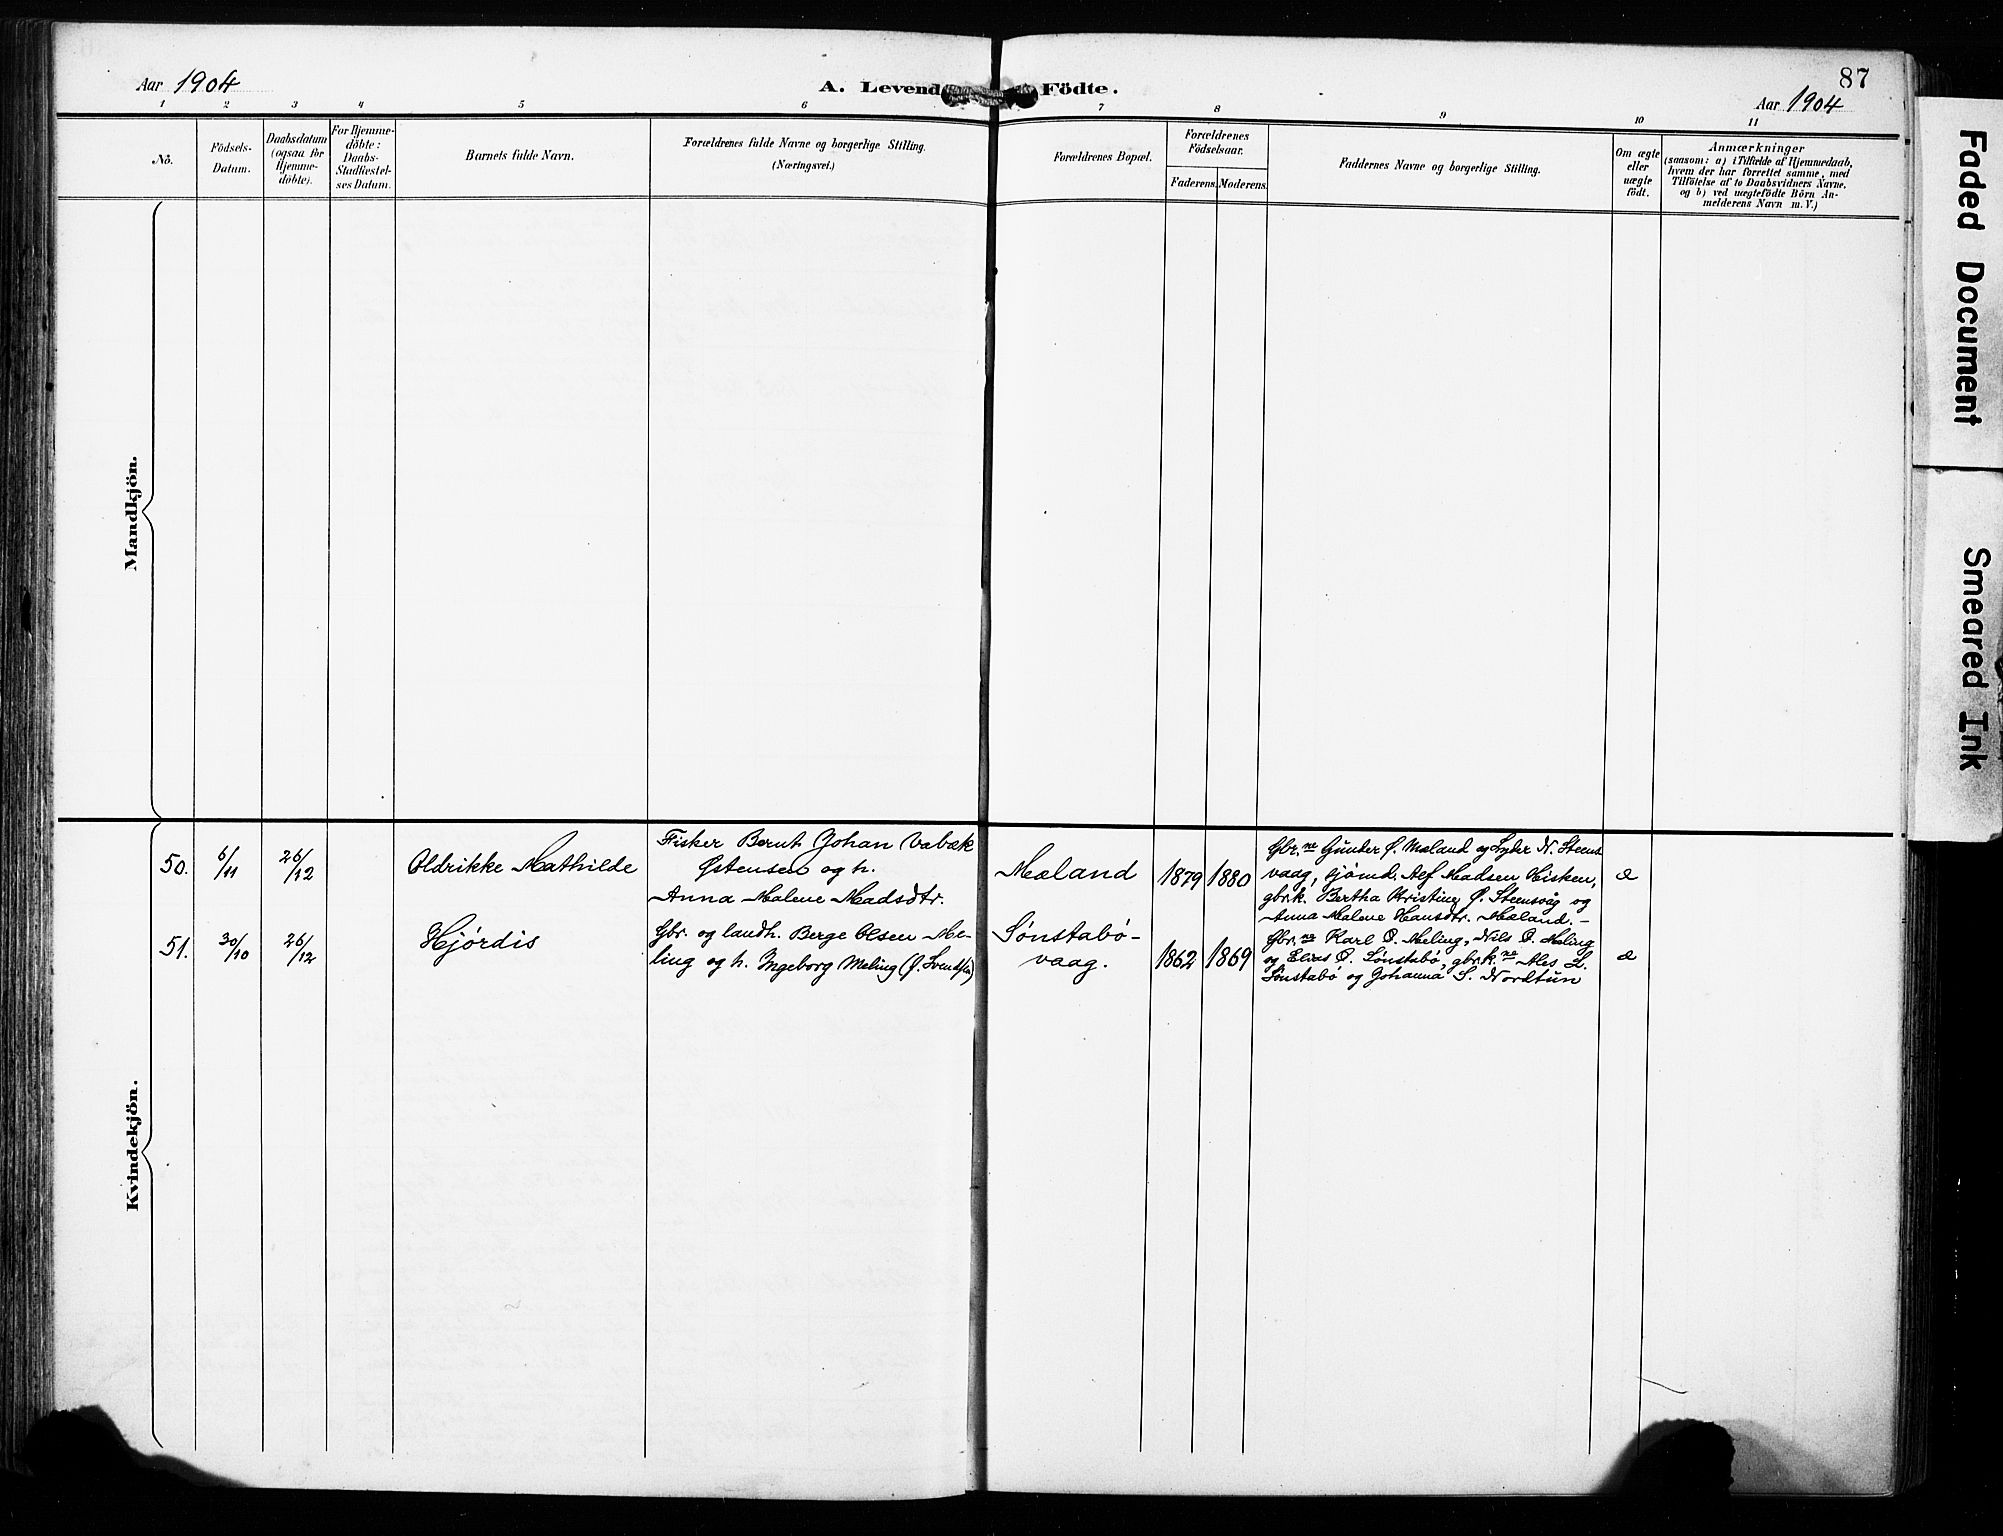 Aar 1904
A. Levende Födte.
87
Aar 1904
1 2 3 4 5 6 7 8 9 10 11
Nô.
Födsels-
Datum.
Daabsdatum
(ogsaa for
Hjemme-
döbte).
For Hjemme-
döbte:
Daabs-
Stadfæstel-
ses Datum.
Barnets fulde Navn.
Forældrenes fulde Navne og borgerlige Stilling.
(Næringsvei.)
Forældrenes Bopæl.
Forældrenes
Födselsaar.
Faderens. Moderens.
Faddernes Navne og borgerlige Stilling.
Om ægte
eller
uægte
födt.
Anmærkninger
(saasom: a) i Tilfælde af Hjemmedaab,
hvem der har forrettet samme, med
Tilföielse af to Daabsvidners Navne,
og b) ved uægtefödte Börn An-
melderens Navn m. V.)
Mandkjön.
Kvindekjön.
50.
6/11
26/12
Oldrikke Mathilde
Fisker Bernt Johan Vabæk
Østensen og h.
Anna Malene Madsdtr.
Mæland
1879
1880
Gbr.ne Gunder Ø. Mæland og Lyder N. Steens
vaag, sjömd. Alf Madsen Hisken,
gbrk. Bertha Kristine Ø. Steensvåg og
Anna Malene Hansdtr. Mæland. –
æ
51.
30/10
26/12
Hjørdis
Gbr. og landh. Berge Olsen Me-
ling og h. Ingeborg Meling (f. Svendsen)
Sønstabø-
vaag.
1862
1869
Gbr.ne Karl O. Meling, Nils O. Meling
og Elias O. Sønstabø, gbrk.ne Ales L.
Sønstabø og Johanna S. Nordtun
æ
Faded Document
Smeared Ink